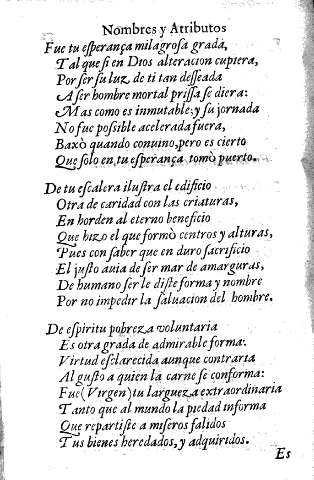 Nombres y Atributos
Fue tu eſperança milagroſa grada,
Tal que ſi en Dios alteracion cupiera,
Por ſer ſu luz de ti tan deſſeada
A ſer hombre mortal priſſa ſe diera:
Mas como es inmutable, y ſu jornada
No fue poſsible acelerada fuera,
Baxò quando conuino, pero es cierto
Que ſolo en tu eſperança tomò puerto.
De tu eſcalera iluſtra el edificio
Otra de caridad con las criaturas,
En horden al eterno beneficio
Que hizo el que formò centros y alturas,
Pues con ſaber que en duro ſacrificio
El juſto auia de ſer mar de amarguras,
De humano ſer le diſte forma y nombre
Por no impedir la ſaluacion del hombre.
De eſpiritu pobreza voluntaria
Es otra grada de admirable forma:
Virtud eſclarecida aunque contraria
Al guſto a quien la carne ſe conforma:
Fue (Virgen) tu largueza extraordinaria
Tanto que al mundo la piedad informa
Que repartiſte a miſeros falidos
Tus bienes heredados, y adquiridos.
Es